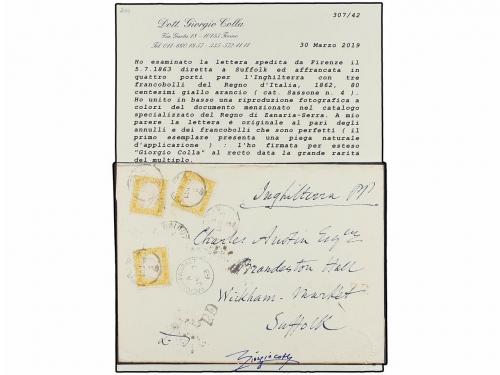 307/42
Dott. Giorgio Colla
30 Marzo 2019
Ho esaminato la lettera spedita da Firenze il
5.7.1863 diretta a Suffolk ed affrancata in
quattro porti per l'Inghilterra con tre
francobolli del Regno d'Italia, 1862, 80
centesimi giallo arancio ( cat. Sassone n. 4 ).
Ho unito in basso una riproduzione fotografica a
colori del documento menzionato nel catalogo
specializzato del Regno di Zanaria-Serra. A mio
parere la lettera è originale al pari degli
annulli e dei francobolli che sono perfetti ( il
primo esemplare presenta una piega naturale
d'applicazione ) : l'ho firmata per esteso
"Giorgio Colla" al recto data la grande rarità
del multiplo.
Inghilterra
Charles Austin Esqre
Brandeston Hall
Wickham-Market
Suffolk
PD